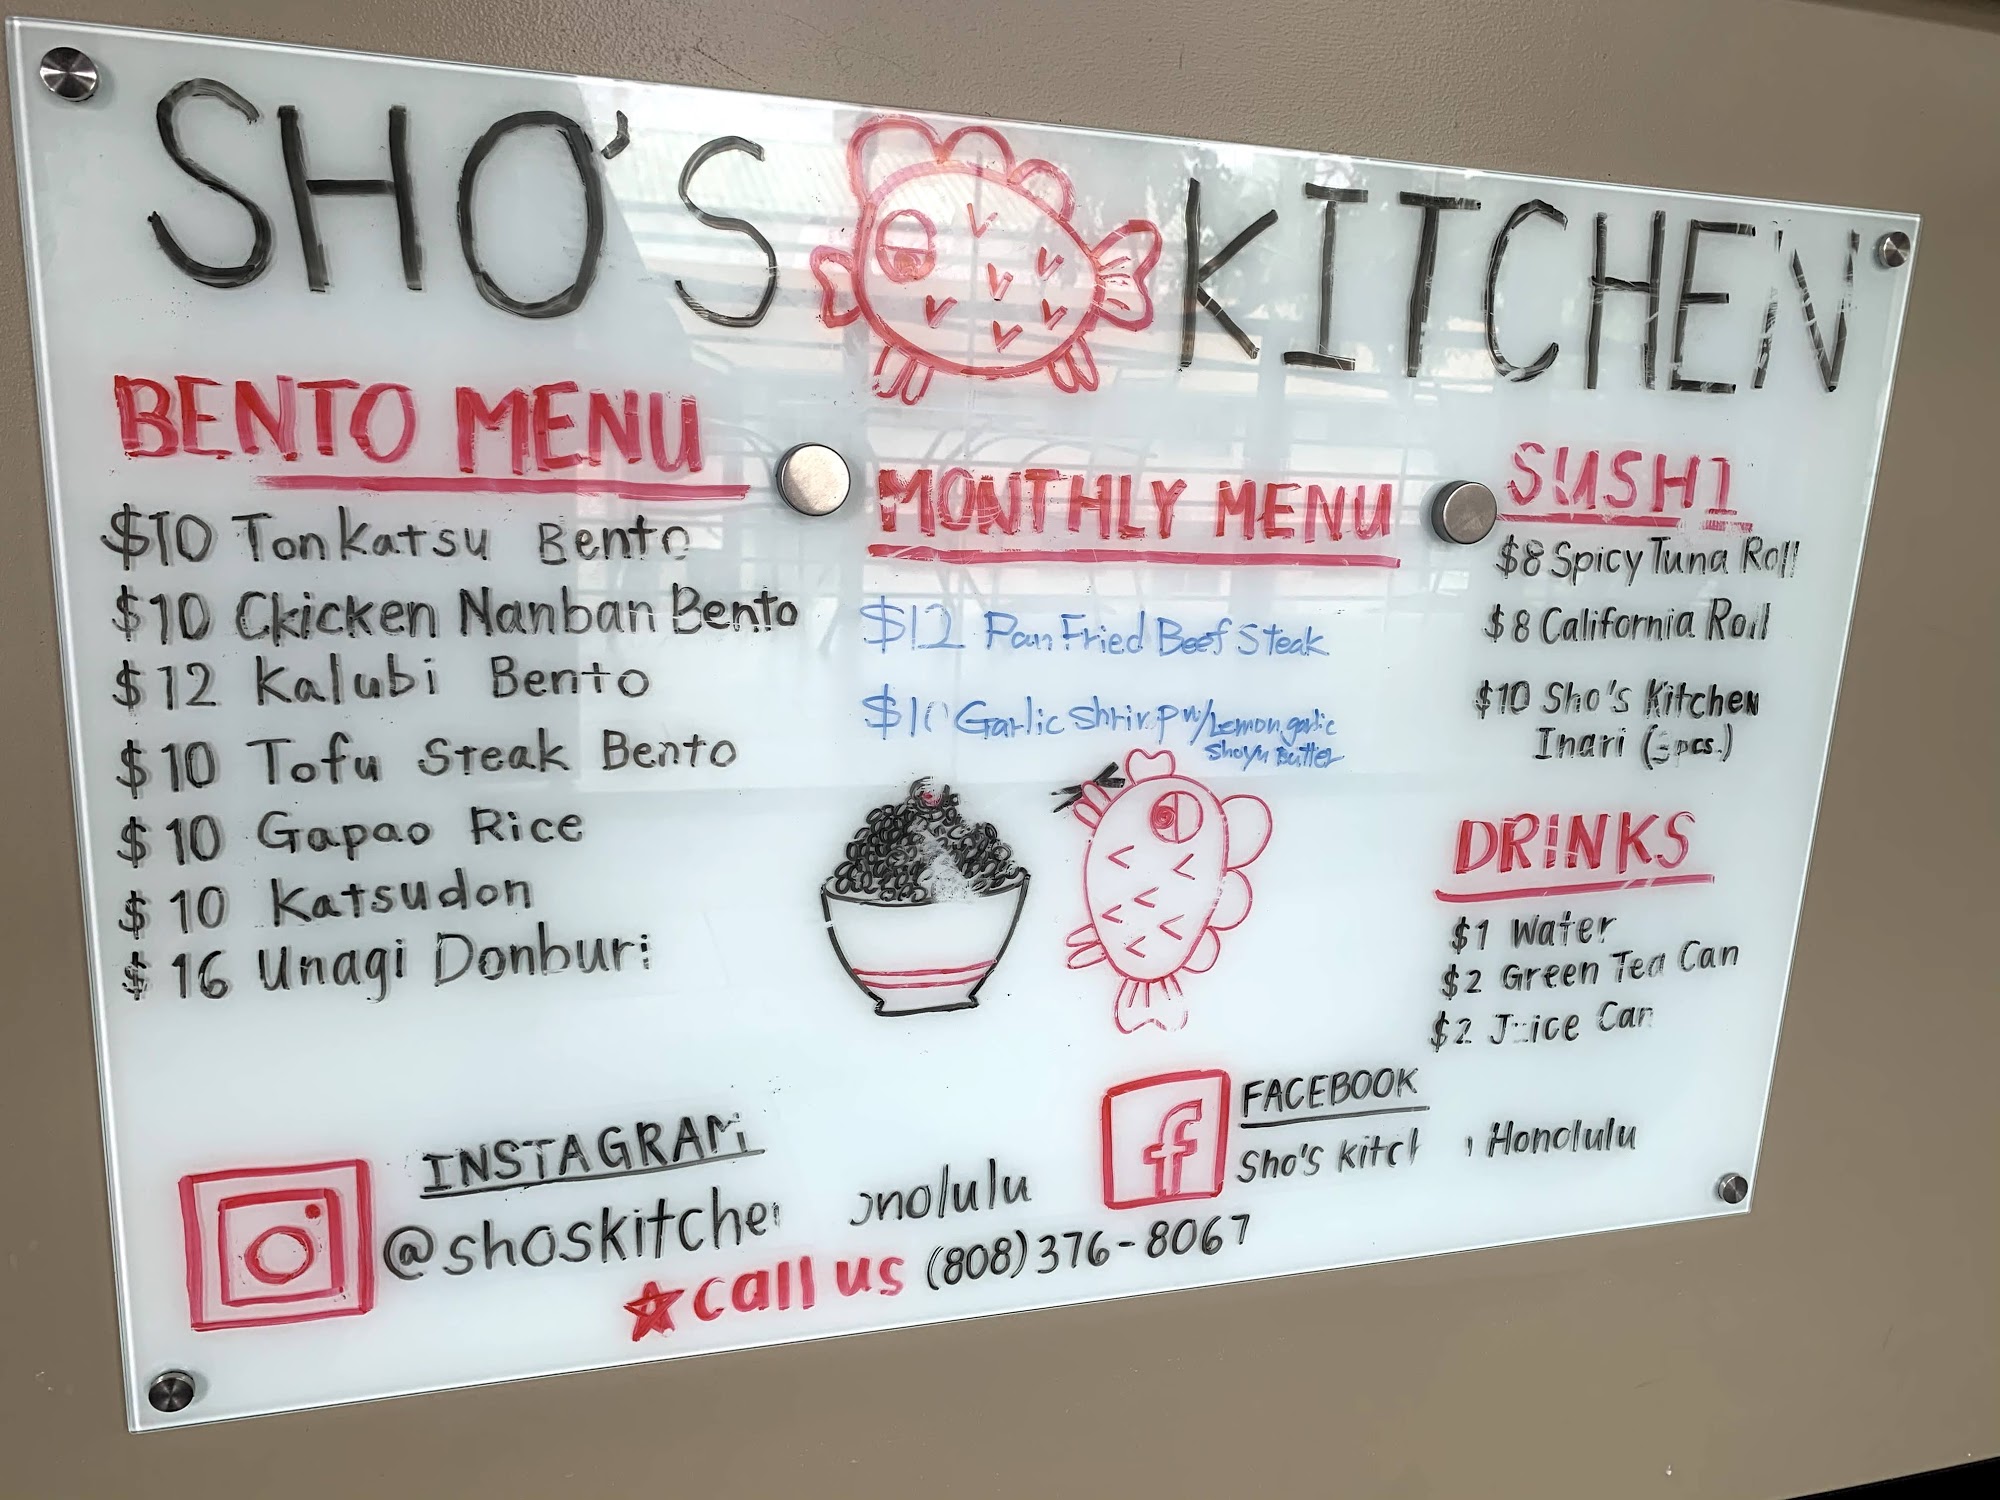 SHO'S KITCHEN
BENTO MENU
$10 Tonkatsu Bento
$10 Ckicken Nanban Bento
$12 Kalubi Bento
$10 Tofu Steak Bento
$10 Gapao Rice
$10 Katsudon
$16 Unagi Donburi
MONTHLY MENU
$12 Pan Fried Beef Steak
Garlic Shrimp w/Lemon garlic
Shoyu Butter
SUSHI
$8 Spicy Tuna Roll
$8 California Roll
$10 Sho's Kitchen
Inari
DRINKS
$1 Water
$2 Green Tea Can
$2 Juice Can
INSTAGRAM
FACEBOOK
Sho's Honolulu
call us (808)376-8067